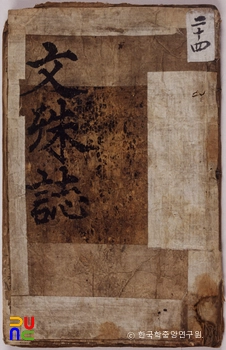 二十四
文殊誌
© 한국학중앙연구원